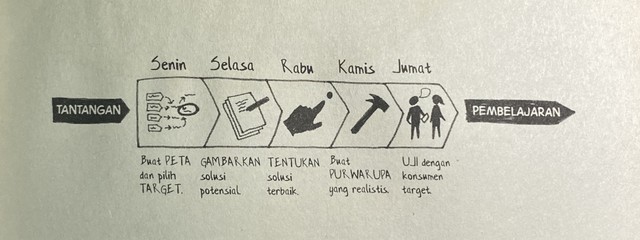 Senin
Selasa
Rabu
Kamis
Jumat
TANTANGAN
PEMBELAJARAN
Buat PETA
dan pilih
TARGET.
GAMBARKAN
solusi
potensial.
TENTUKAN
solusi
terbaik.
Buat
PURWARUPA
yang realistis.
UJI dengan
konsumen
target.